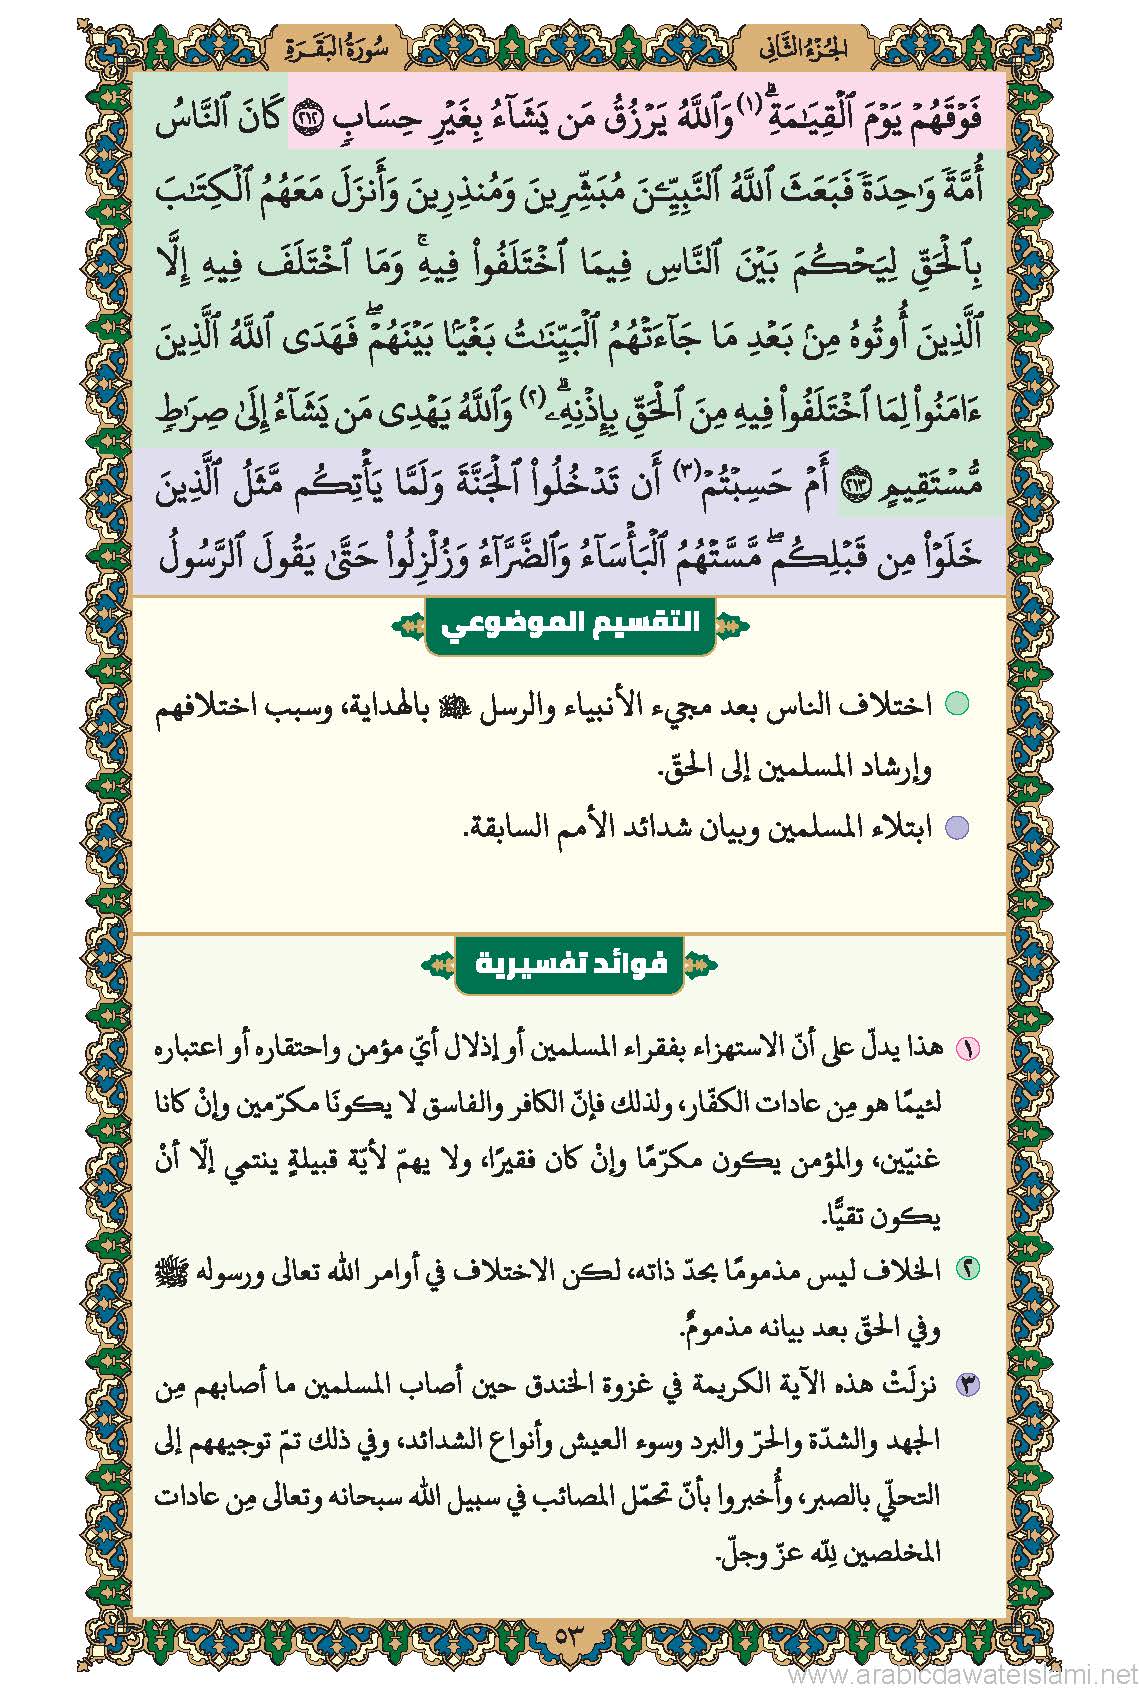 الجُزْءُ الثَّانِي
سُورَةُ البَقَرَةِ
فَوۡقَهُمۡ يَوۡمَ ٱلۡقِيَٰمَةِۗ (١) وَٱللَّهُ يَرۡزُقُ مَن يَشَآءُ بِغَيۡرِ حِسَابٖ ٢١٢ كَانَ ٱلنَّاسُ
أُمَّةٗ وَٰحِدَةٗ فَبَعَثَ ٱللَّهُ ٱلنَّبِيِّـۧنَ مُبَشِّرِينَ وَمُنذِرِينَ وَأَنزَلَ مَعَهُمُ ٱلۡكِتَٰبَ
بِٱلۡحَقِّ لِيَحۡكُمَ بَيۡنَ ٱلنَّاسِ فِيمَا ٱخۡتَلَفُواْ فِيهِۚ وَمَا ٱخۡتَلَفَ فِيهِ إِلَّا
ٱلَّذِينَ أُوتُوهُ مِنۢ بَعۡدِ مَا جَآءَتۡهُمُ ٱلۡبَيِّنَٰتُ بَغۡيَۢا بَيۡنَهُمۡۖ فَهَدَى ٱللَّهُ ٱلَّذِينَ
ءَامَنُواْ لِمَا ٱخۡتَلَفُواْ فِيهِ مِنَ ٱلۡحَقِّ بِإِذۡنِهِۦۗ (٢) وَٱللَّهُ يَهۡدِي مَن يَشَآءُ إِلَىٰ صِرَٰطٖ
مُّسۡتَقِيمٍ ٢١٣ أَمۡ حَسِبۡتُمۡ (٣) أَن تَدۡخُلُواْ ٱلۡجَنَّةَ وَلَمَّا يَأۡتِكُم مَّثَلُ ٱلَّذِينَ
خَلَوۡاْ مِن قَبۡلِكُمۖ مَّسَّتۡهُمُ ٱلۡبَأۡسَآءُ وَٱلضَّرَّآءُ وَزُلۡزِلُواْ حَتَّىٰ يَقُولَ ٱلرَّسُولُ
التقسيم الموضوعي
اختلاف الناس بعد مجيء الأنبياء والرسل ﷺ بالهداية، وسبب اختلافهم
وإرشاد المسلمين إلى الحقّ.
ابتلاء المسلمين وبيان شدائد الأمم السابقة.
فوائد تفسيرية
١ هذا يدلّ على أنّ الاستهزاء بفقراء المسلمين أو إذلال أيّ مؤمن واحتقاره أو اعتباره
لئيمًا هو مِن عادات الكفّار، ولذلك فإنّ الكافر والفاسق لا يكونَا مكرّمين وإنْ كانا
غنيّين، والمؤمن يكون مكرّمًا وإنْ كان فقيرًا، ولا يهمّ لأيّة قبيلةٍ ينتمي إلّا أنْ
يكون تقيًّا.
٢ الخلاف ليس مذمومًا بحدّ ذاته، لكن الاختلاف في أوامر الله تعالى ورسوله ﷺ
وفي الحقّ بعد بيانه مذمومٌ.
٣ نزلَتْ هذه الآية الكريمة في غزوة الخندق حين أصاب المسلمين ما أصابهم مِن
الجهد والشدّة والحرّ والبرد وسوء العيش وأنواع الشدائد، وفي ذلك تمّ توجيههم إلى
التحلّي بالصبر، وأُخبروا بأنّ تحمّل المصائب في سبيل الله سبحانه وتعالى مِن عادات
المخلصين لِلّه عزّ وجلّ.
٥٣
www.arabicdawateislami.net